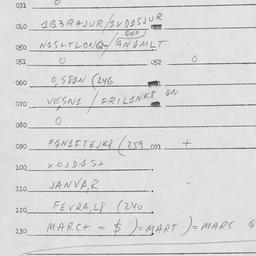 031 0
040 1B3RAJUR/1VD15JUR
050 N1S+TLONG-/AN1MLT
051 0 052 0
060 0,581N (246
070 VESN1 / FRIL1NK8 ON
080 0
090 FQN1FTEJK8 (259 091 +
100 XOJD15+
110 JANVA,R -
120 FEVRA,L8 (240
130 MARC+ = $ )= MART )= MARC